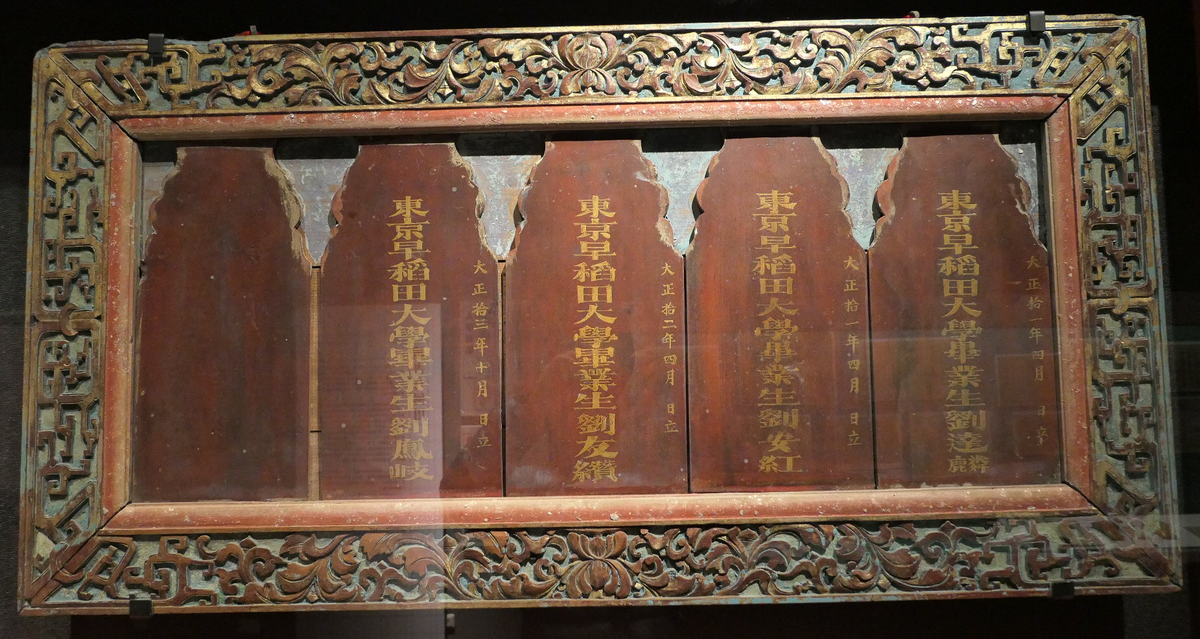 大正拾一年四月 日立
東京早稻田大學畢業生劉達麟
大正拾一年四月 日立
東京早稻田大學畢業生劉安紅
大正拾二年四月 日立
東京早稻田大學畢業生劉友纘
大正拾三年十月 日立
東京早稻田大學畢業生劉鳳岐